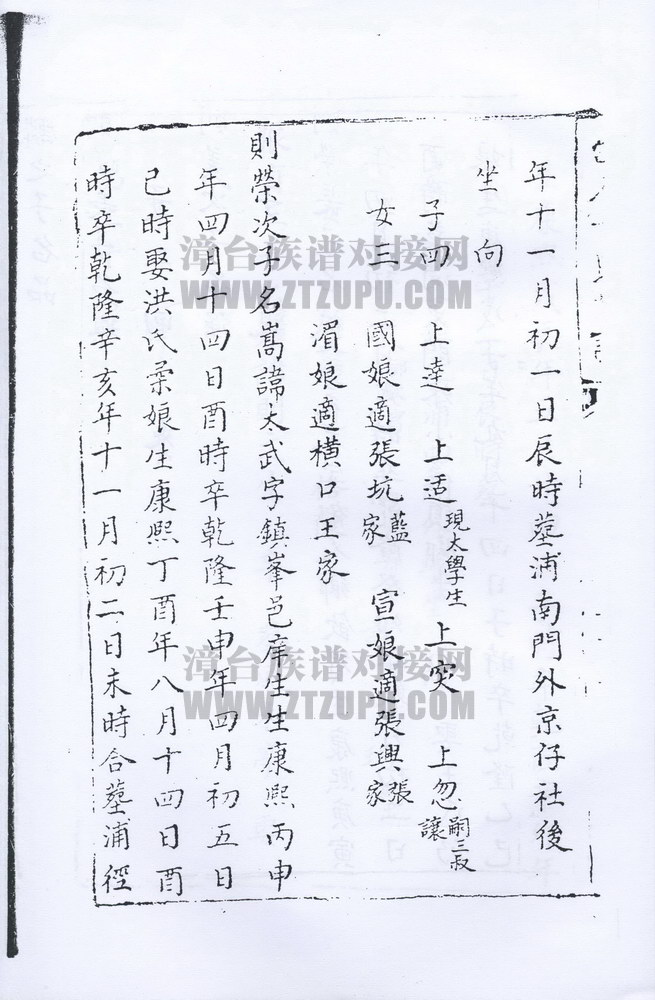 年十一月初一日辰時墓浦南門外京仔社後
坐向
子四 上達 上适現太學生 上突 上忽嗣三叔讓
女三 國娘適張坑藍家 宣娘適張興張家
湄娘適橫口王家
則榮次子名嵩諱太武字鎮峯邑庠生生康熙丙申
年四月十四日酉時卒乾隆壬申年四月初五日
巳時娶洪氏柔娘生康熙丁酉年八月十四日酉
時卒乾隆辛亥年十一月初二日未時合墓浦徑
漳台族谱对接网
WWW.ZTZUPU.COM
漳台族谱对接网
WWW.ZTZUPU.COM